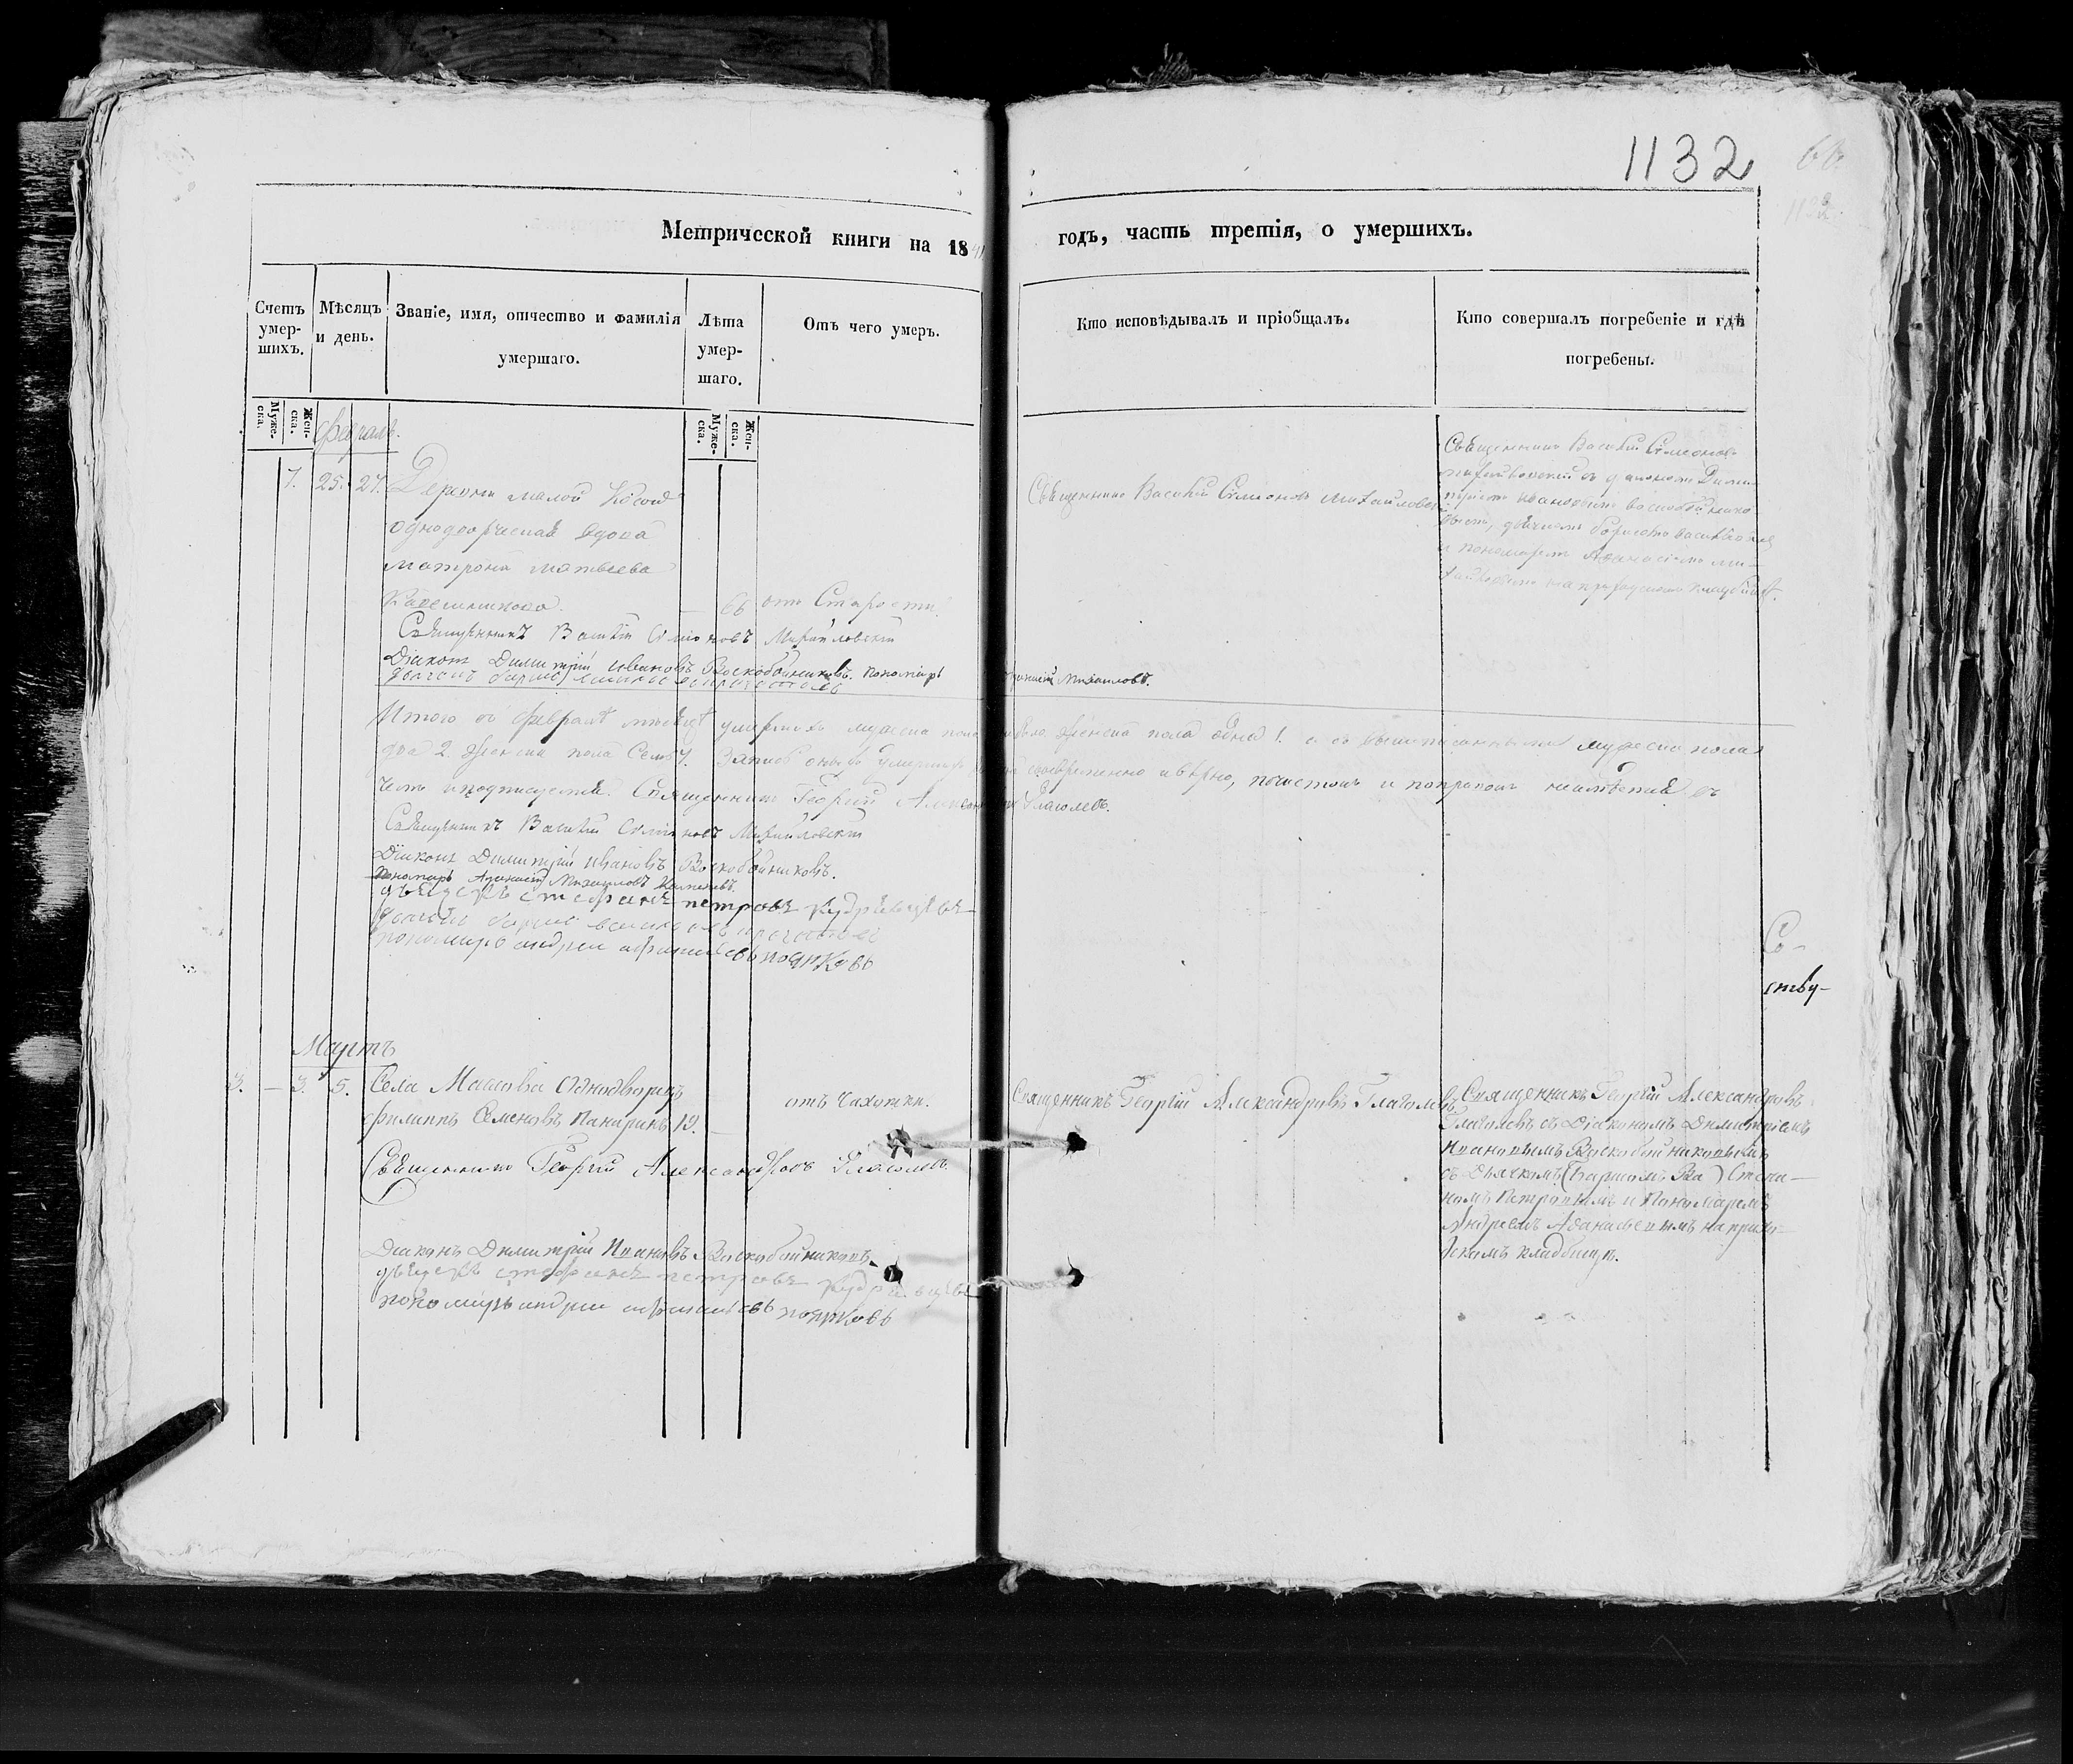 1132
66.
Метрической книги на 1841 годъ, часть третія, о умершихъ.
Счетъ умер-шихъ.
Мѣсяцъ и день.
Званіе, имя, отчество и фамилія умершаго.
Лѣта умер-шаго.
Отъ чего умеръ.
Кто исповѣдывалъ и пріобщалъ.
Кто совершалъ погребеніе и гдѣ погребены.
Муже-ска.
Жен-ска.
Муже-ска.
Жен-ска.
февраль.
7. 25. 27. Деревни малой
однодворческая вдова
матрона матвѣева
66 отъ Старости
Священникъ Василій Симеоновъ Михайловскій
Священникъ Василій Симеонов
Михайловскій съ діакономъ Дими-
тріемъ Ивановымъ Воскобойнико
вымъ, дьячкомъ борисомъ васильевымъ
и пономаремъ Афанасіемъ Ми-
хайловымъ на приходскомъ кладбищѣ.
Священникъ Василій Симіоновъ Михайловскій
Діаконъ Димитрій Ивановъ Воскобойниковъ. пономарь Афанасій Михаиловъ.
Итого въ февралѣ мѣсяцѣ умершихъ мужеска пола женска пола одна 1. а съ вышеписанными мужеска пола
два 2. женска пола Семь 7. Запись онаго своевременно и вѣрно, почистокъ и поправокъ неимѣетъ въ
чемъ и подписуемся. Священникъ Георгій Александровъ Глаголевъ.
Священникъ Василій Симіоновъ Михайловскій
Діаконъ Димитрій Ивановъ Воскобойниковъ.
Пономарь Афанасій Михаиловъ
дьячекъ стефанъ петровъ кудрявцевъ
пономарь андреи афанасьевъ поярковъ
Со-
ству-
Мартъ
3. — 3. 5. Села Маслова Однодворецъ
филиппъ Семеновъ Панаринъ 19. — отъ Чахотки.
Священникъ Георгій Александровъ Глаголевъ.
Священникъ Георгій Александровъ
Глаголевъ съ Діакономъ Димитріемъ
Ивановымъ Воскобойниковымъ
съ Дьячкомъ (Борисомъ Ва) Степа-
номъ Петровымъ и Панамаремъ
Андреемъ Афанасьевымъ на прихо-
дскомъ кладбищѣ.
Священникъ Георгій Александровъ Глаголевъ.
Діаконъ Димитрій Ивановъ Воскобойниковъ.
дьячекъ стефанъ петровъ кудрявцевъ
пономарь андреи афанасьевъ поярковъ